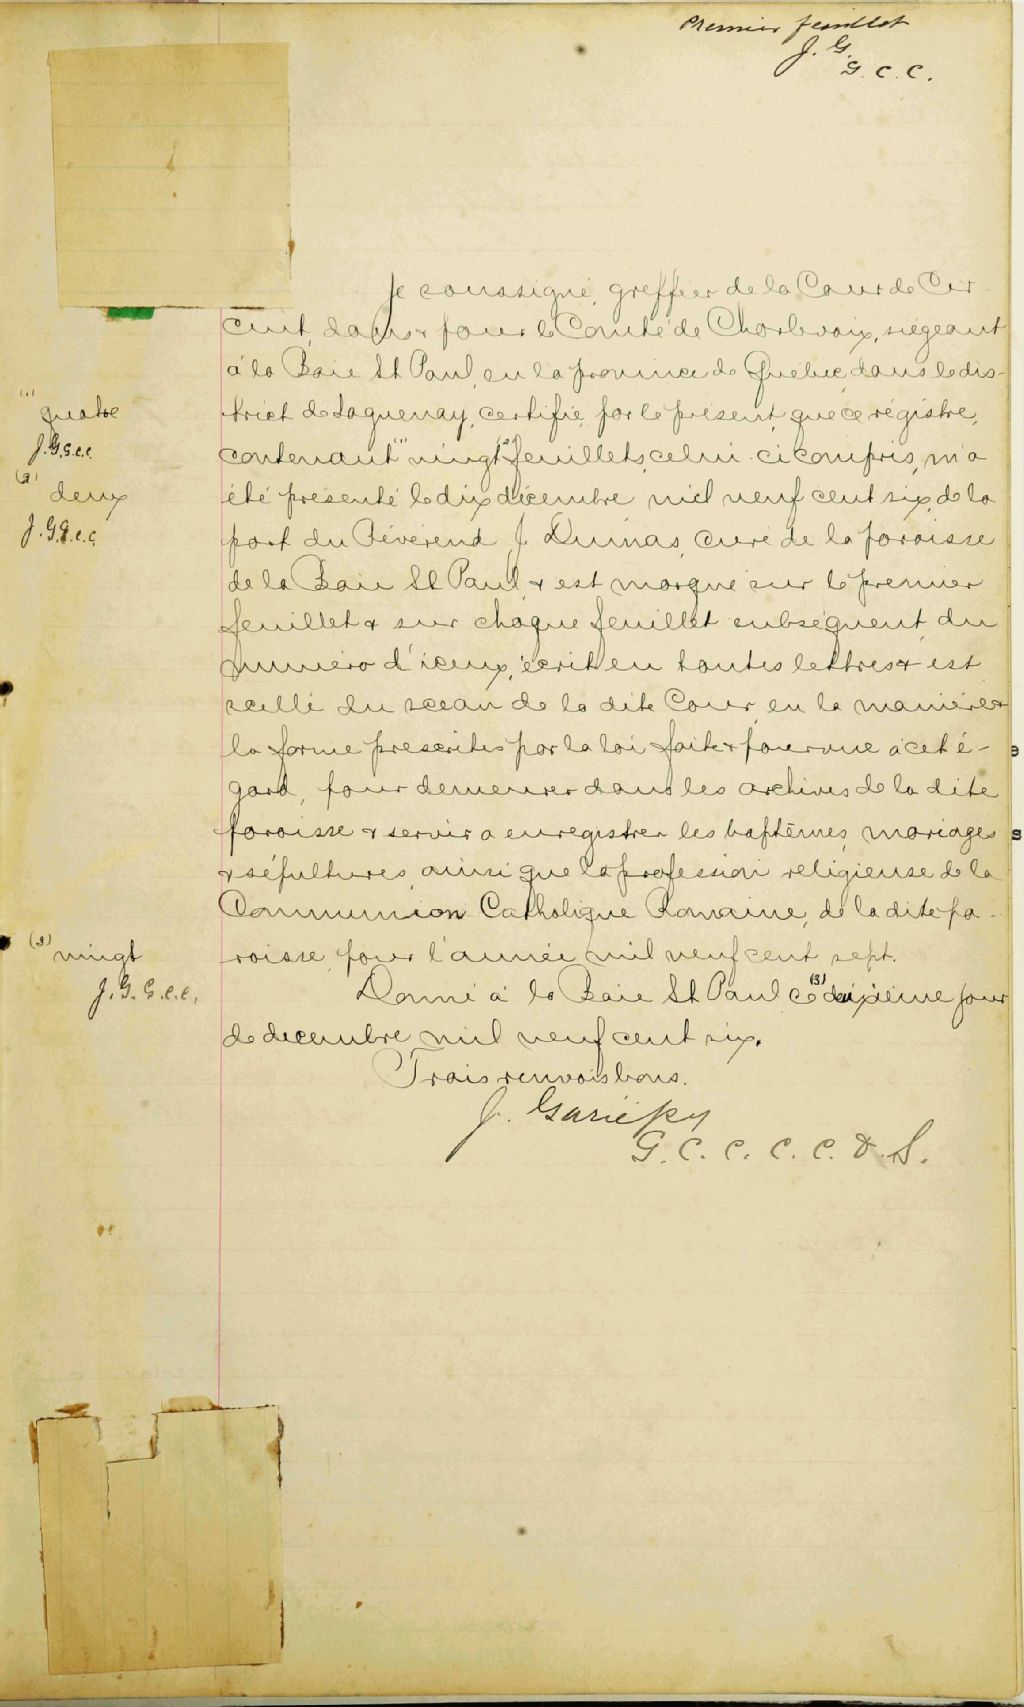 Premier feuillet
J. G.
G. C. C.
Je soussigné, greffier de la Cour de Cir-
cuit, dans & pour le Comté de Charlevoix, siégeant
à la Baie St Paul, en la province de Québec, dans le dis-
trict de Saguenay, certifie, par le présent, que ce régistre,
contenant (1) vingt (2) feuillets, celui-ci compris, m'a
été présenté le dix décembre mil neuf cent six, de la
part du Révérend J. Dumas, curé de la paroisse
de la Baie St Paul, & est marqué sur le premier
feuillet & sur chaque feuillet subséquent, du
numéro d'iceux, écrit en toutes lettres & est
scellé du sceau de la dite Cour, en la manière &
la forme prescrites par la loi faite & pourvue à cet é-
gard, pour demeurer dans les archives de la dite
paroisse & servir à enregistrer les baptêmes, mariages
& sépultures, ainsi que la profession religieuse de la
Communion Catholique Romaine, de la dite pa-
roisse, pour l'année mil neuf cent sept.
Donné à la Baie St Paul ce (3) dixième jour
de décembre mil neuf cent six.
Trois renvois bons.
J. Gariépy
G. C. C. C. C. & S.
(1) quatre
J. G. G. c. c.
(2) deux
J. G. G. c. c.
(3) vingt
J. G. G. c. c.